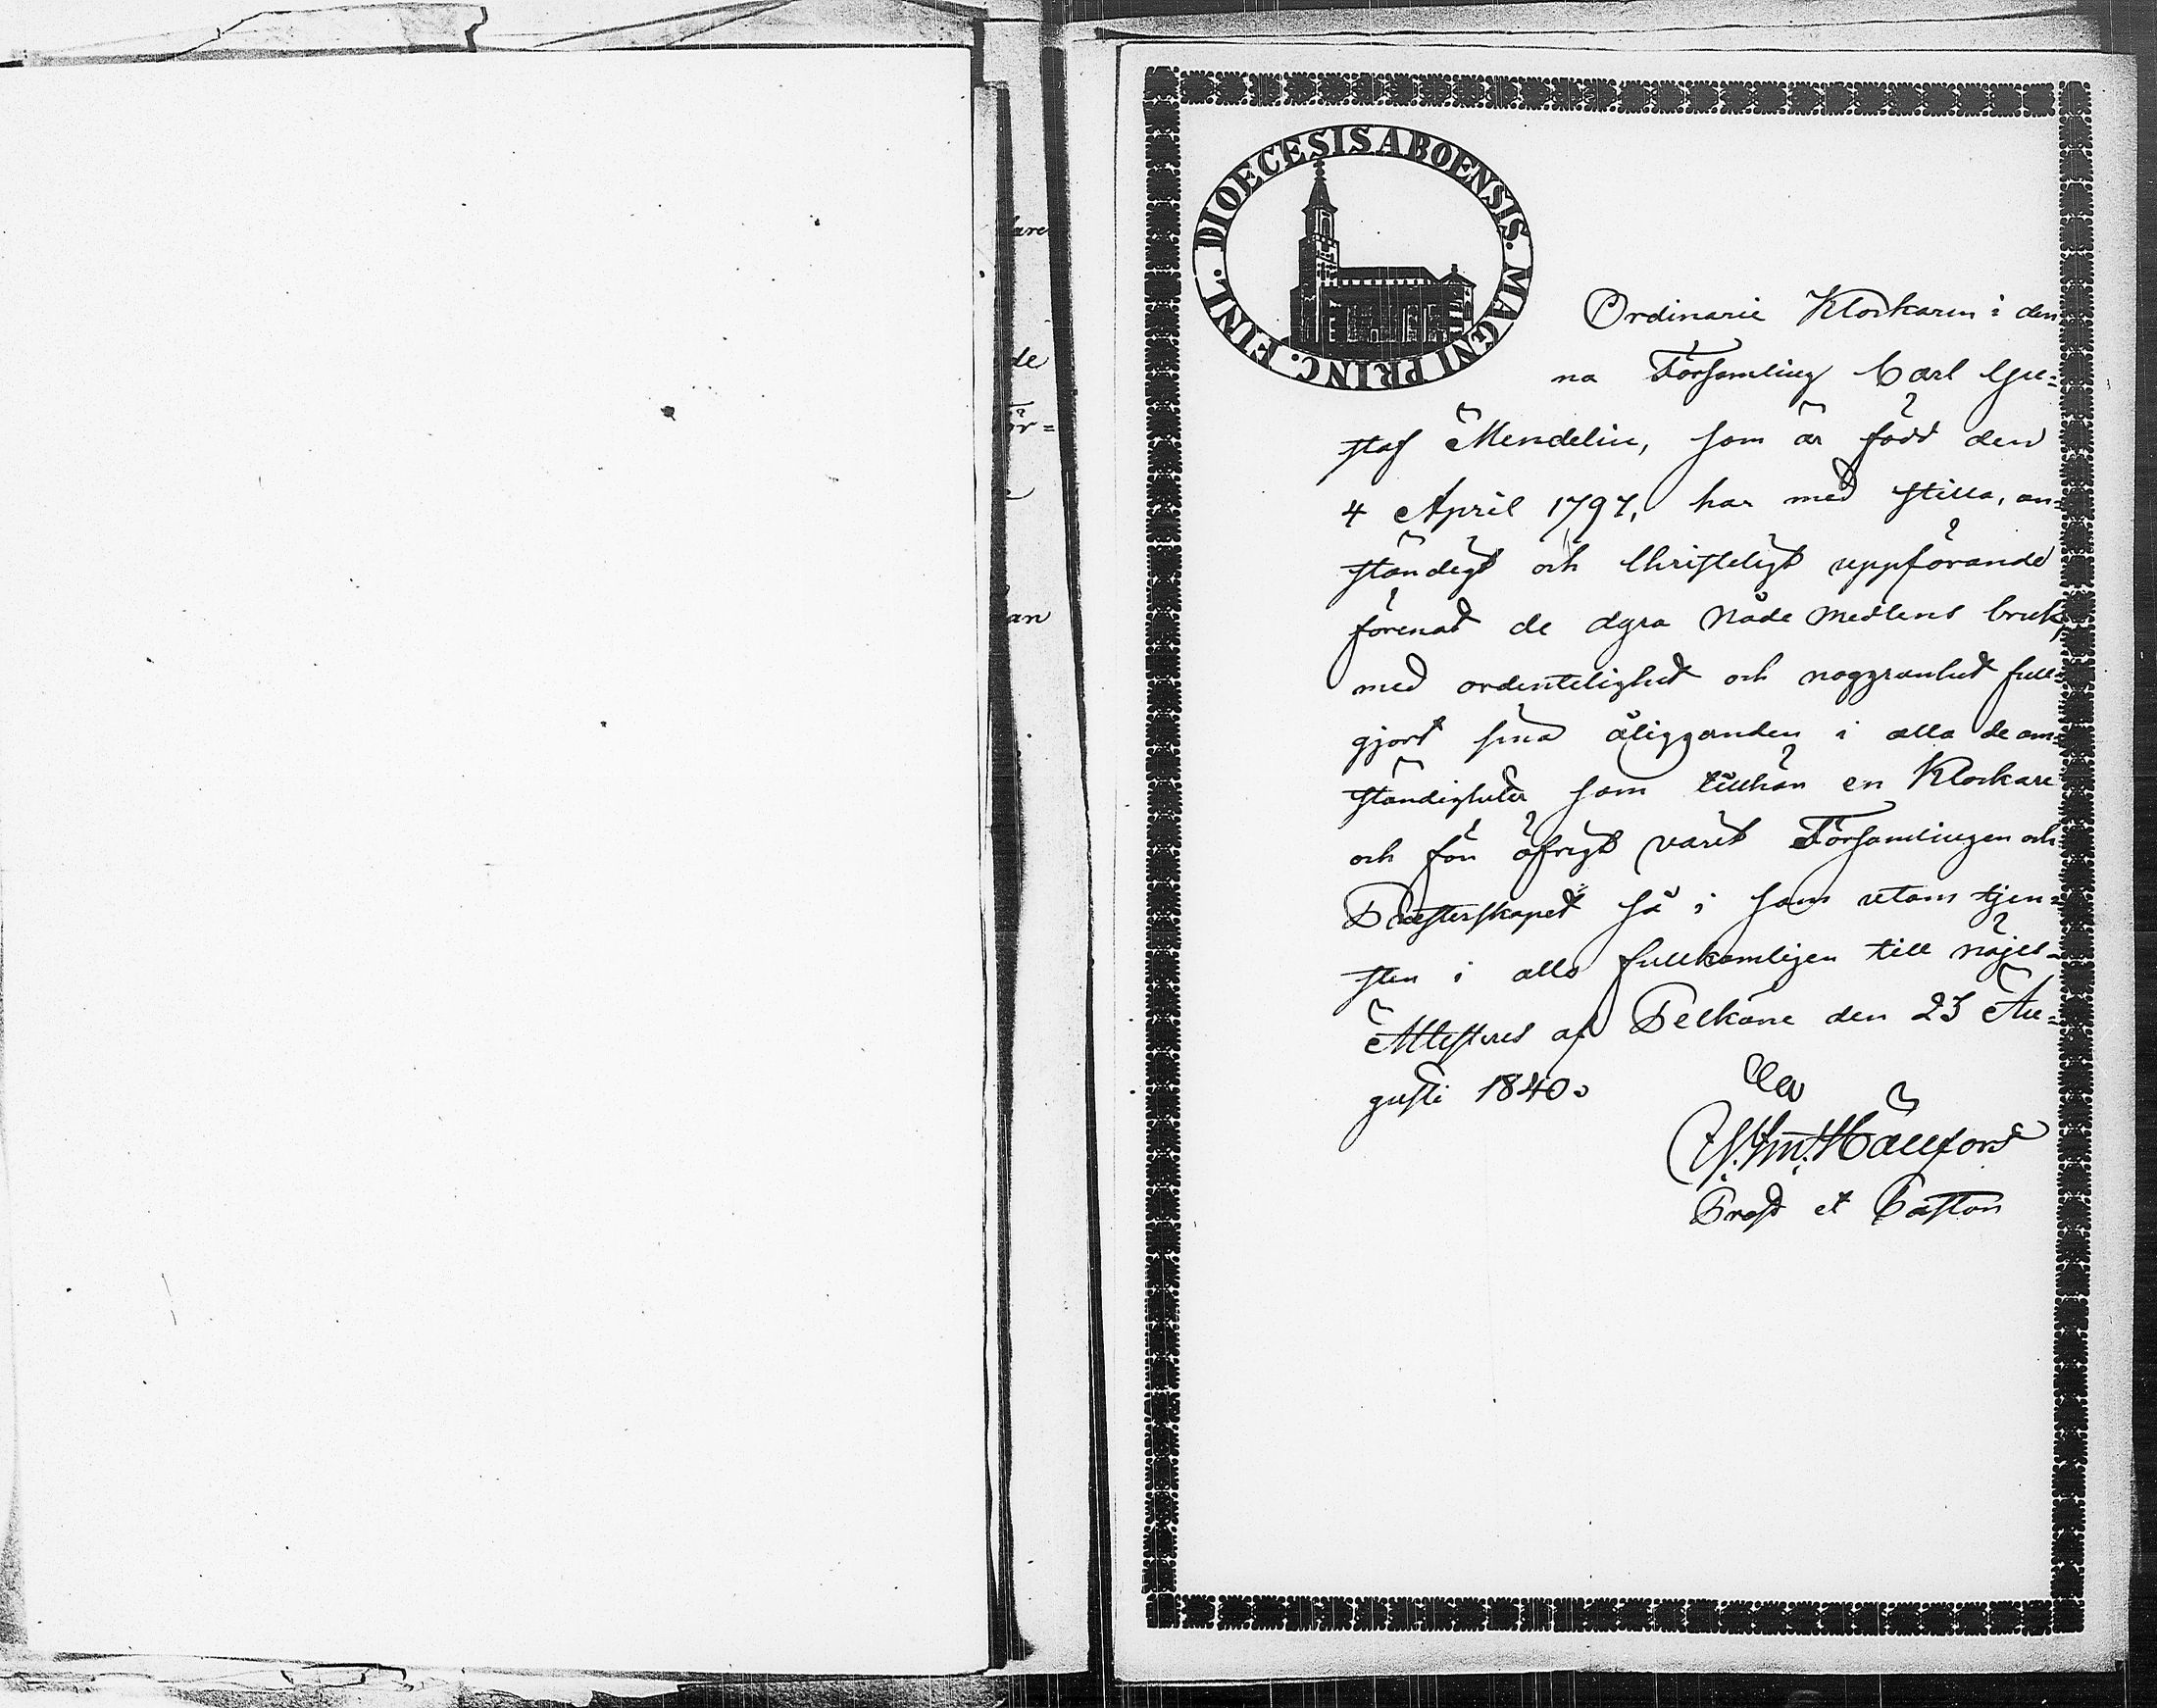 are
de
ör=
an
DIOECESIS ABOENSIS. MAGNI PRINC. FINL.
Ordinarie Klockaren i den
na Församling Carl Gu=
staf Mendelin, som är född den
4 April 1797, har med stilla, an=
ständigt och Christeligt uppförande
förenat de dyra Nåde medlens bruk,
med ordentelighet och noggranhet full=
gjort sina åligganden i alla de om=
ständigheter som tillhör en Klockare
och för öfrigt varit Församlingen och
Presterskapet så i som utom tjen=
sten i allo fullkomligen till nöjes.
Attesteras af Pelkäne den 23 Au=
gusti 1840.
Hällfors
Prost et Pastor